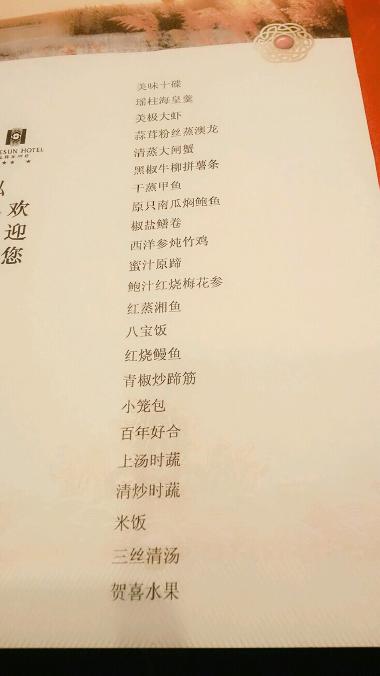 美味十碟
瑶柱海皇羹
美极大虾
蒜茸粉丝蒸澳龙
清蒸大闸蟹
黑椒牛柳拼薯条
干蒸甲鱼
原只南瓜焖鲍鱼
椒盐鳝卷
西洋参炖竹鸡
蜜汁原蹄
鲍汁红烧梅花参
红蒸湘鱼
八宝饭
红烧鳗鱼
青椒炒蹄筋
小笼包
百年好合
上汤时蔬
清炒时蔬
米饭
三丝清汤
贺喜水果
ESUN HOTEL
欢迎您